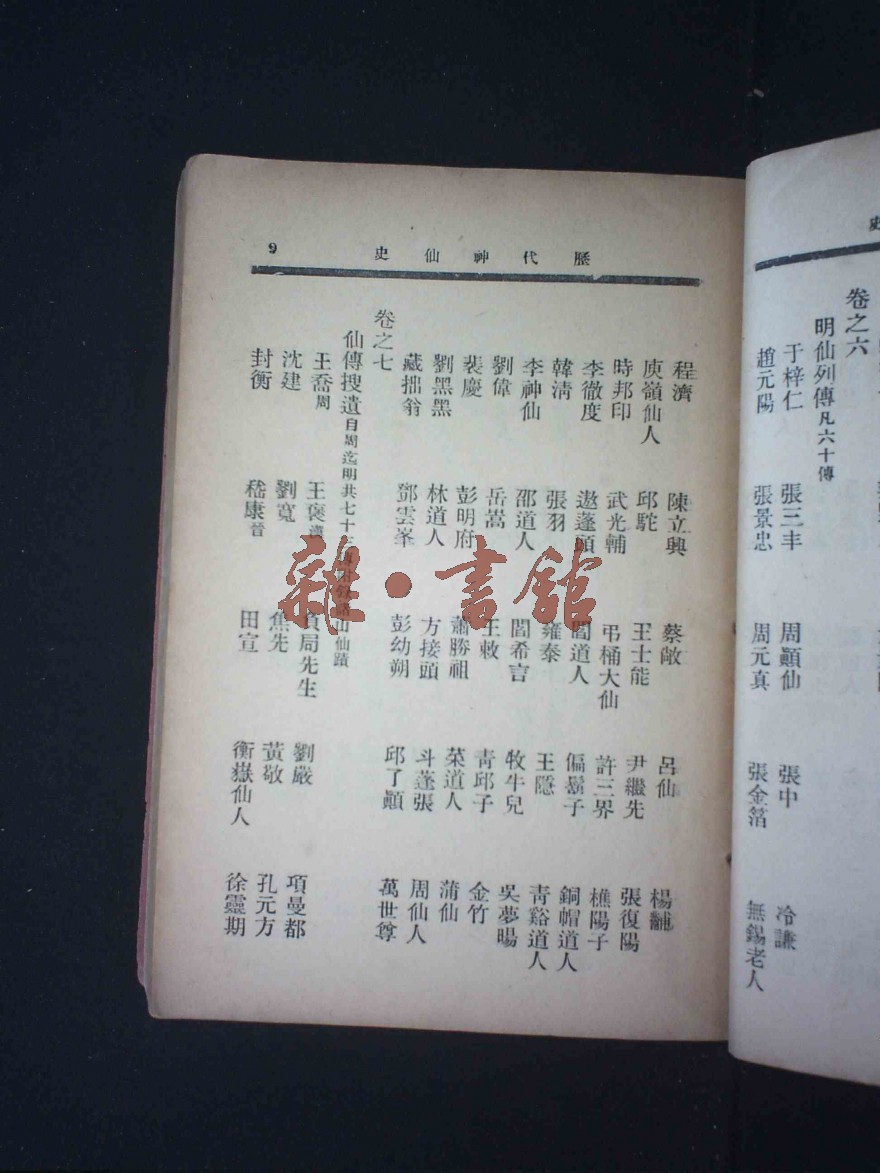 史
卷之六
明仙列傳凡六十傳
于梓仁 張三丰 周顚仙 張中 冷謙
趙元陽 張景忠 周元真 張金箔 無錫老人
歷代神仙史
9
程濟 陳立興 蔡敞 呂仙 楊黼
庾嶺仙人 邱駝 王士能 尹繼先 張復陽
時邦印 武光輔 弔桶大仙 許三界 樵陽子
李徹度 遨蓬頭 閻道人 偏髻子 銅帽道人
韓淸 張羽 雍泰 王隱 靑谿道人
李神仙 邵道人 閻希言 牧牛兒 吳夢暘
劉偉 岳嵩 王敕 靑邱子 金竹
裴慶 彭明府 蕭勝祖 菜道人 蒲仙
劉黑黑 林道人 方接頭 斗蓬張 周仙人
藏拙翁 鄧雲峯 彭幼朔 邱了顚 萬世尊
卷之七
仙傳搜遺自周迄明共七十 諸山仙蹟
王喬周 王褒漢 負局先生 劉嚴 項曼都
沈建 劉寬 焦先 黃敬 孔元方
封衡 嵇康晉 田宣 衡嶽仙人 徐靈期
雜·書館